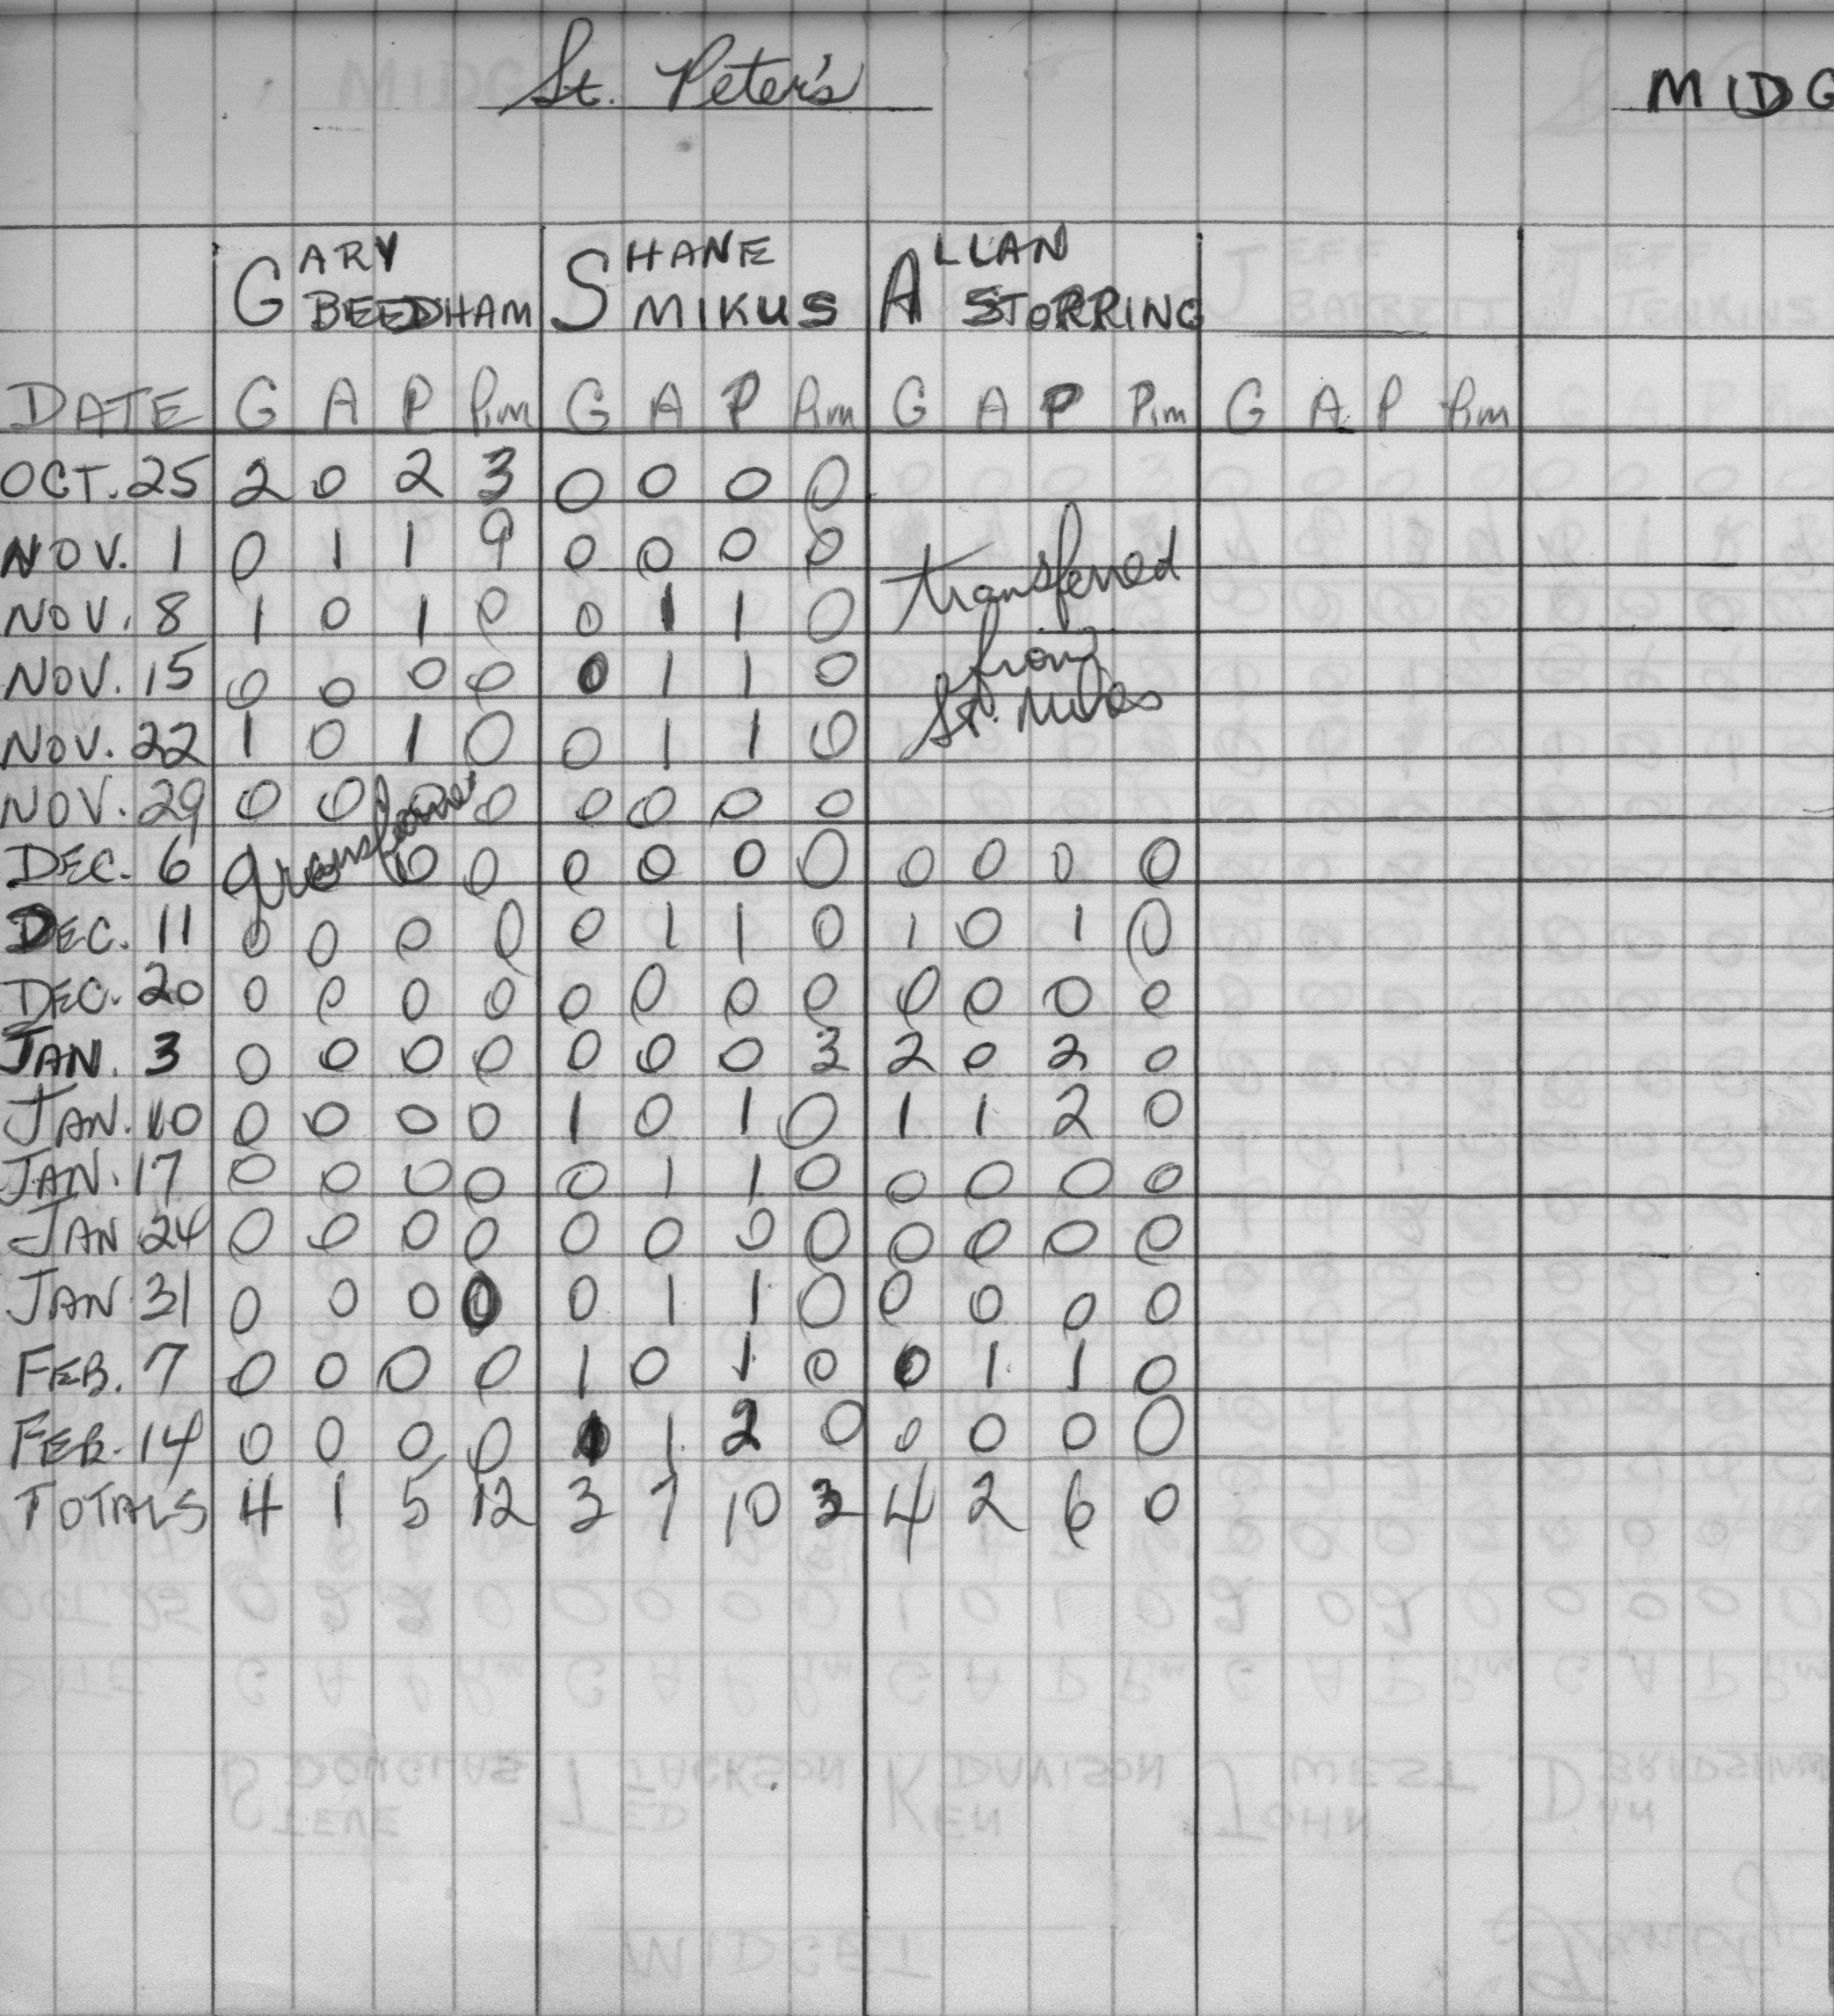 St. Peter's
MIDG
GARY BEEDHAM SHANE MIKUS ALLAN STORRING
DATE G A P Pim G A P Pim G A P Pim G A P Pim
OCT. 25 2 0 2 3 0 0 0 0
NOV. 1 0 1 1 9 0 0 0 0
transferred
NOV. 8 1 0 1 0 0 1 1 0
from
NOV. 15 0 0 0 0 0 1 1 0
St. 
NOV. 22 1 0 1 0 0 1 1 0
NOV. 29 0 0 0 0 0 0 0 0
DEC. 6 0 0 0 0 0 0 0 0 0 0
DEC. 11 0 0 0 0 0 1 1 0 1 0 1 0
DEC. 20 0 0 0 0 0 0 0 0 0 0 0 0
JAN. 3 0 0 0 0 0 0 0 3 2 0 2 0
JAN. 10 0 0 0 0 1 0 1 0 1 1 2 0
JAN. 17 0 0 0 0 0 1 1 0 0 0 0 0
JAN 24 0 0 0 0 0 0 0 0 0 0 0 0
JAN 31 0 0 0 0 0 1 1 0 0 0 0 0
FEB. 7 0 0 0 0 1 0 1 0 0 1 1 0
FEB. 14 0 0 0 0 1 1 2 0 0 0 0 0
TOTALS 4 1 5 12 3 7 10 3 4 2 6 0